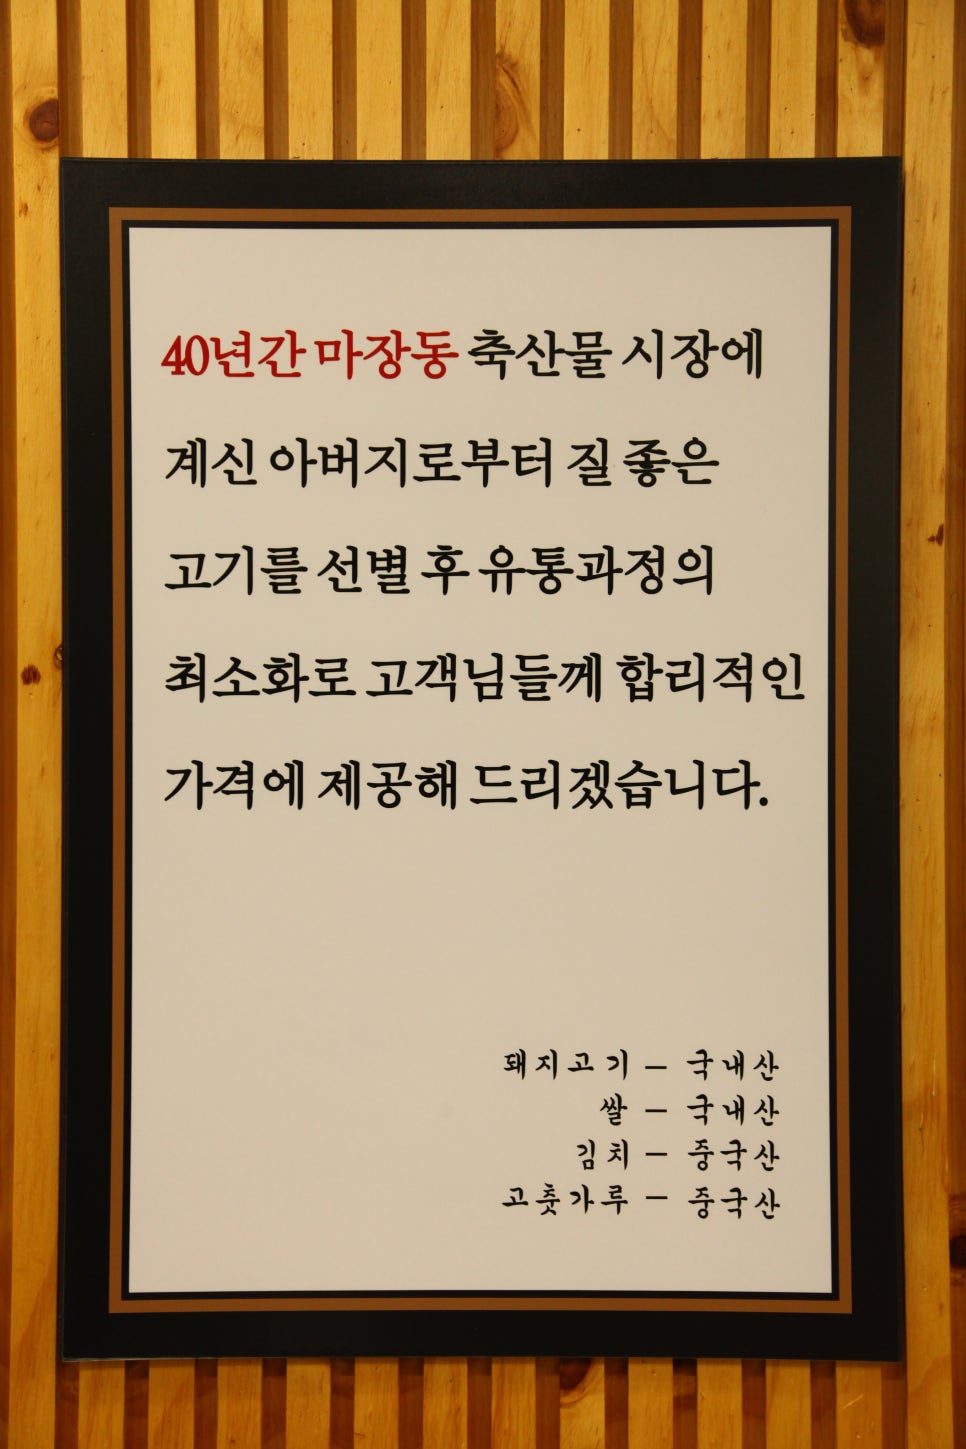 40년간 마장동 축산물 시장에
계신 아버지로부터 질 좋은
고기를 선별 후 유통과정의
최소화로 고객님들께 합리적인
가격에 제공해 드리겠습니다.
돼지고기 – 국내산
쌀 – 국내산
김치 – 중국산
고춧가루 – 중국산